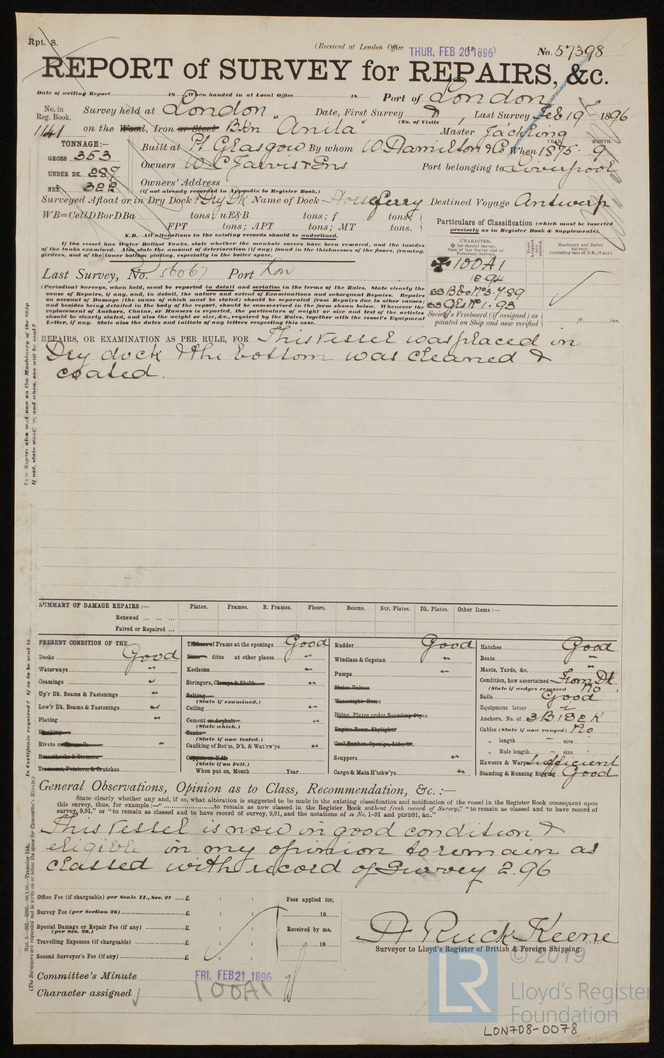 Rpt. 8.
(Received at London Office THUR, FEB 20 1896)
No. 57398
REPORT of SURVEY for REPAIRS, &c.
Date of writing Report 18 When handed in at Local Office 18 Port of London
No. in Reg. Book. Survey held at London Date, First Survey Last Survey Feb 19th 1896
(No. of Visits
1141 on the Wood, Iron or Steel Bkn "Anita" Master
TONNAGE:—
GROSS 353
UNDER DK.
NET 322
Built at Pt Glasgow By whom W Hamilton & Co When 1875. 9
YEAR. MONTH.
Owners W C Jarvis & Sons Port belonging to Liverpool
Owners' Address
(if not already recorded in Appendix to Register Book.)
Surveyed Afloat or in Dry Dock? Dry Dk Name of Dock Destined Voyage Antwerp
WB=CellDBorDBa tons; uE&B tons; f tons
FPT tons; APT tons; MT tons.
N.B.—All alterations in the existing records should be underlined.
If the vessel has Water Ballast Tanks, state whether the manhole covers have been removed, and the insides
of the tanks examined. Also state the amount of deterioration (if any) found in the thicknesses of the floors, framing,
girders, and of the inner bottom plating, especially in the boiler space.
Particulars of Classification (which must be inserted
precisely as in Register Book & Supplements).
✠ 100A1
Last Survey, No. Port Lon
(Periodical Surveys, when held, must be reported in detail and seriatim in the terms of the Rules. State clearly the
cause of Repairs, if any, and, in detail, the nature and extent of Examinations and subsequent Repairs. Repairs
on account of Damage (the cause of which must be stated) should be separated from Repairs due to other causes;
and besides being detailed in the body of the report, should be summarised in the form shown below. Whenever the
replacement of Anchors, Chains, or Hawsers is reported, the particulars of weight or size and test of the articles
should be clearly stated, and also the weight or size, &c., required by the Rules, together with the vessel's Equipment
Letter, if any. State also the dates and initials of any letters respecting this case.
Society's Freeboard (if assigned) as
painted on Ship and now verified ft. ins.
REPAIRS, OR EXAMINATION AS PER RULE, FOR This Vessel was placed in
Dry dock & the bottom was cleaned &
coated.
SUMMARY OF DAMAGE REPAIRS:— Plates. Frames. R. Frames. Floors. Beams. Str. Plates. Dk. Plates. Other Items:—
Renewed
Faired or Repaired
PRESENT CONDITION OF THE
Decks Good
Waterways "
Coamings "
Up'r Dk. Beams & Fastenings "
Low'r Dk. Beams & Fastenings "
Plating "
Rivets "
Transoms, Pointers, & Crutches
of Frame at the openings Good
ditto at other places "
Keelsons "
Stringers, Clamps & Shelfs "
Salting
(State if examined.)
Ceiling "
Cement or Asphalt "
(State which.)
(State if now tested.)
Caulking of Bot'm, D'k, & Wat'rw'ys "
(State if on Felt.)
When put on, Month Year
Rudder Good
Windlass & Capstan "
Pumps "
Scuppers "
Cargo & Main H'tchw'ys "
Hatches Good
Boats "
Masts, Yards, &c. "
Condition, how ascertained From Dk
(State if wedges removed) No
Sails Good
Equipment letter
Anchors, No. of 3B 1S & K
Cables (State if now ranged) No
" length size
" Rule length size
Hawsers & Warps Sufficient
Standing & Running Rigging Good
General Observations, Opinion as to Class, Recommendation, &c.:—
State clearly whether any, and if so, what alteration is suggested to be made in the existing classification and notification of the vessel in the Register Book consequent upon
this survey, thus, for example:—" to remain as now classed in the Register Book without fresh record of Survey," "to remain as classed and to have record of
survey, 9,91," or "to remain as classed and to have record of survey, 9,91, and the notations of ss No. 1-91 and ptND91, &c."
This vessel is now in good condition &
eligible in my opinion to remain as
classed with record of Survey 2.96
Office Fee (if chargeable) per Scale II., Sec. 27 £ : : Fees applied for,
Survey Fee (per Section 28) £ : : 18
Special Damage or Repair Fee (if any) (per Sec. 28.) £ : : Received by me,
Travelling Expenses (if chargeable) £ : : 18
Second Surveyor's Fee (if any) £ : :
A Ruck Keene
Surveyor to Lloyd's Register of British & Foreign Shipping.
Committee's Minute FRI. FEB 21 1896
Character assigned 100A1
© 2019
LR
Lloyd's Register
Foundation
LON708-0078